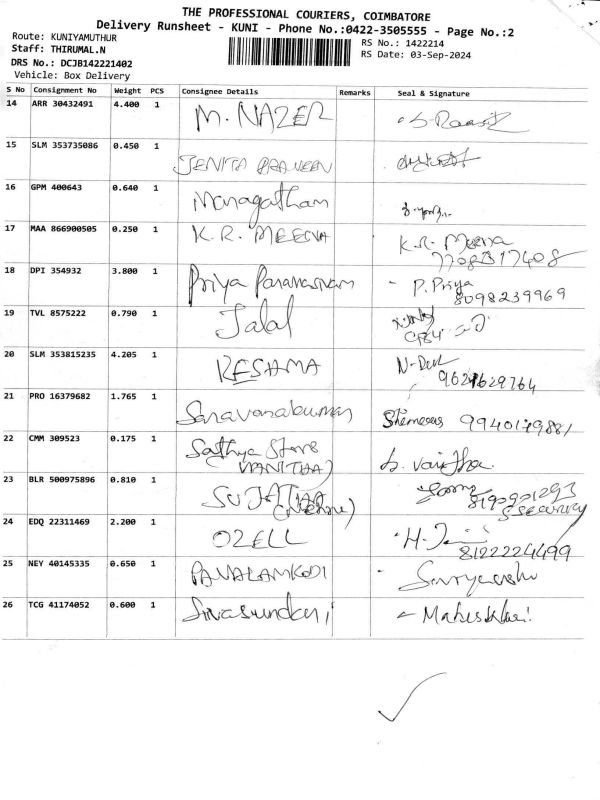 THE PROFESSIONAL COURIERS, COIMBATORE
Delivery Runsheet - KUNI - Phone No.:0422-3505555 - Page No.:2
Route: KUNIYAMUTHUR
RS No.: 1422214
Staff: THIRUMAL.N
RS Date: 03-Sep-2024
DRS No.: DCJB142221402
Vehicle: Box Delivery
S No Consignment No Weight PCS Consignee Details Remarks Seal & Signature
14 ARR 30432491 4.400 1 M. NAZER
15 SLM 353735086 0.450 1 JENITA PRAVEEN
16 GPM 400643 0.640 1 Managatham
17 MAA 866900505 0.250 1 K.R. MEENA K.R. Meena
7708317408
18 DPI 354932 3.800 1 Priya Paramasivam P. Priya
8098239969
19 TVL 8575222 0.790 1 Jalal
20 SLM 353815235 4.205 1 RESHMA
9629629764
21 PRO 16379682 1.765 1 Saravanakumar
22 CMM 309523 0.175 1 Sathya Store S. Vanitha
(VANITHA)
23 BLR 500975896 0.810 1 SUJATHA
Security
24 EDQ 22311469 2.200 1 OZELL
8122224499
25 NEY 40145335 0.650 1 PAVALAMKODI
26 TCG 41174052 0.600 1 Sivasundari